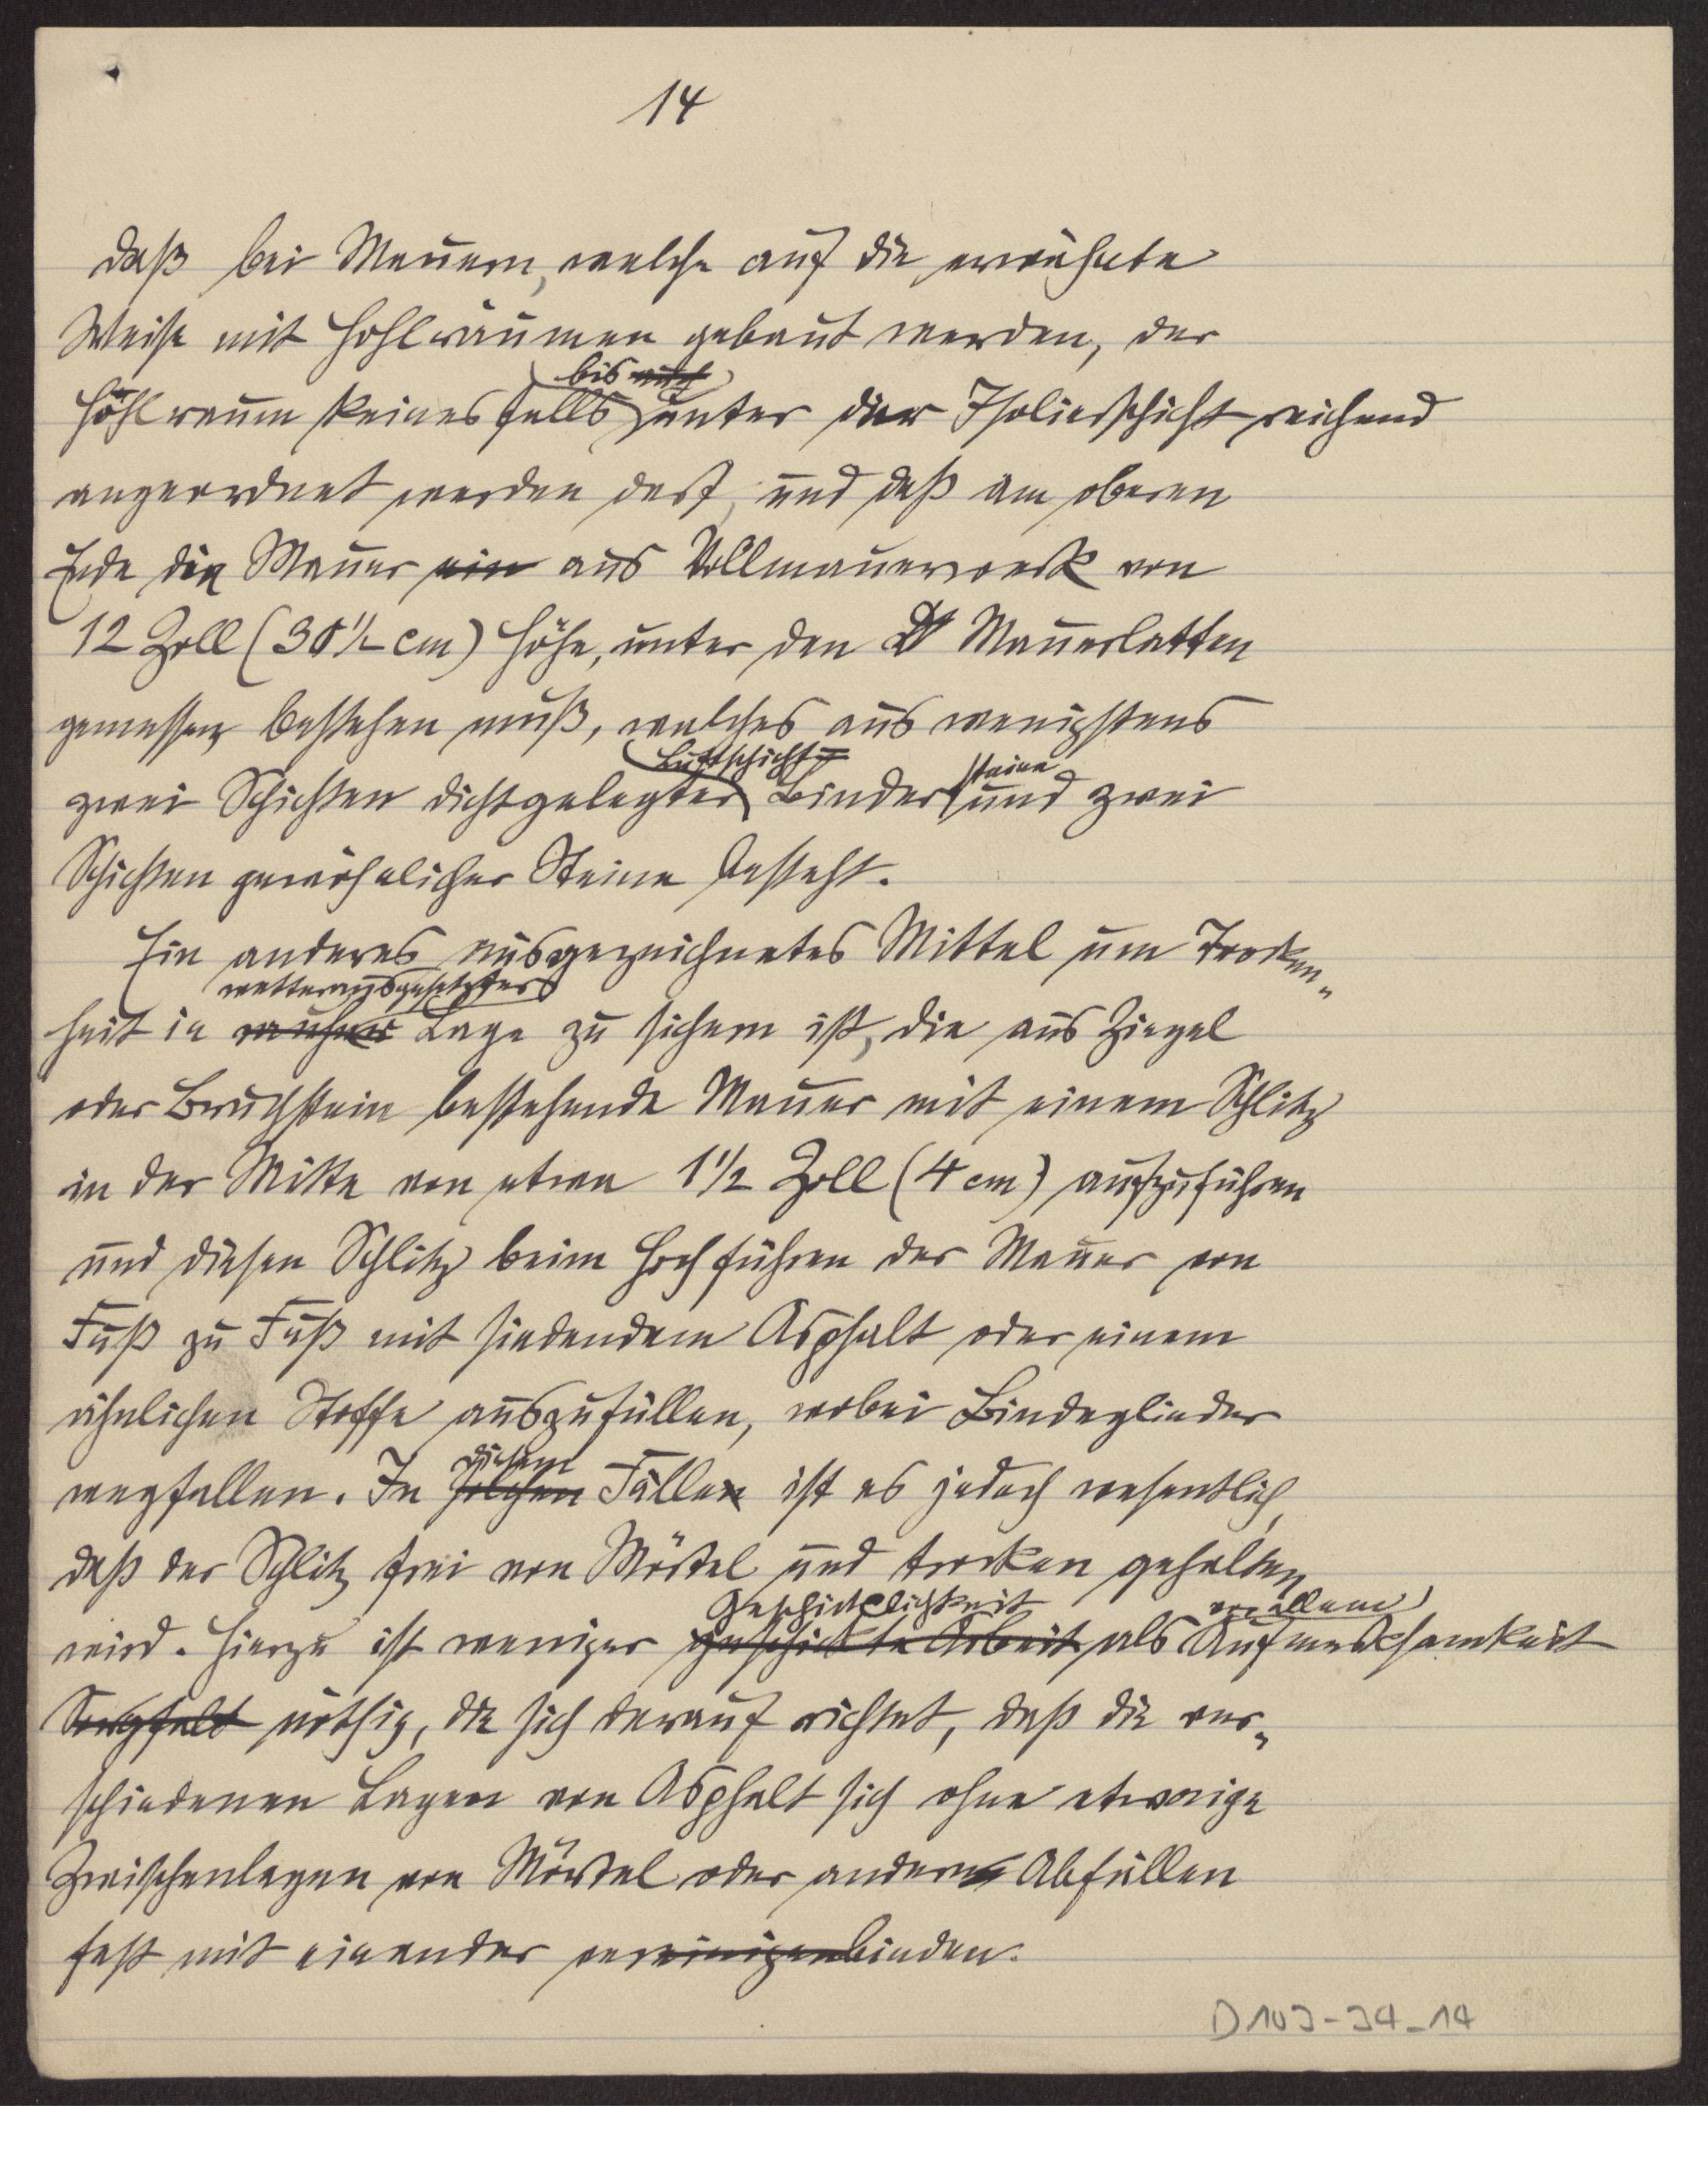 14
daß bei Mauern, welche auf die erwähnte
Weise mit Hohlräumen gebaut werden, der
bis auch
Hohlraum keinesfalls unter der Isolierschicht reichend
angeordnet werden darf, und daß am oberen
Ende die Mauer ein aus Vollmauerwerk von
12 Zoll (30 1/2 cm) Höhe, unter den Mauerlatten
gemessen bestehen muß, welches aus wenigstens
Luftschicht= steine
zwei Schichten dichtgelegter Binder und zwei
Schichten gewöhnlicher Steine besteht.
Ein anderes ausgezeichnetes Mittel um Trocken„
wetterausgesetzter
heit in rauher Lage zu sichern ist, die aus Ziegel
oder Bruchstein bestehende Mauer mit einem Schlitz
in der Mitte von etwa 1 1/2 Zoll (4 cm) aufzuführen
und diesen Schlitz beim Hochführen der Mauer von
Fuß zu Fuß mit siedendem Asphalt oder einem
ähnlichen Stoffe auszufüllen, wobei Bindeglieder
diesem
wegfallen. In solchen Fällen ist es jedoch wesentlich,
daß der Schlitz frei von Mörtel und trocken gehalten
Geschicklichkeit vor allem
wird. Hierzu ist weniger geschickte Arbeit als Aufmerksamkeit
Sorgfalt nöthig, die sich darauf richtet, daß die ver„
schiedenen Lagen von Asphalt sich ohne etwaige
Zwischenlagen von Mörtel oder andern Abfällen
fest mit einander vereinigenbinden.
D103-34_14